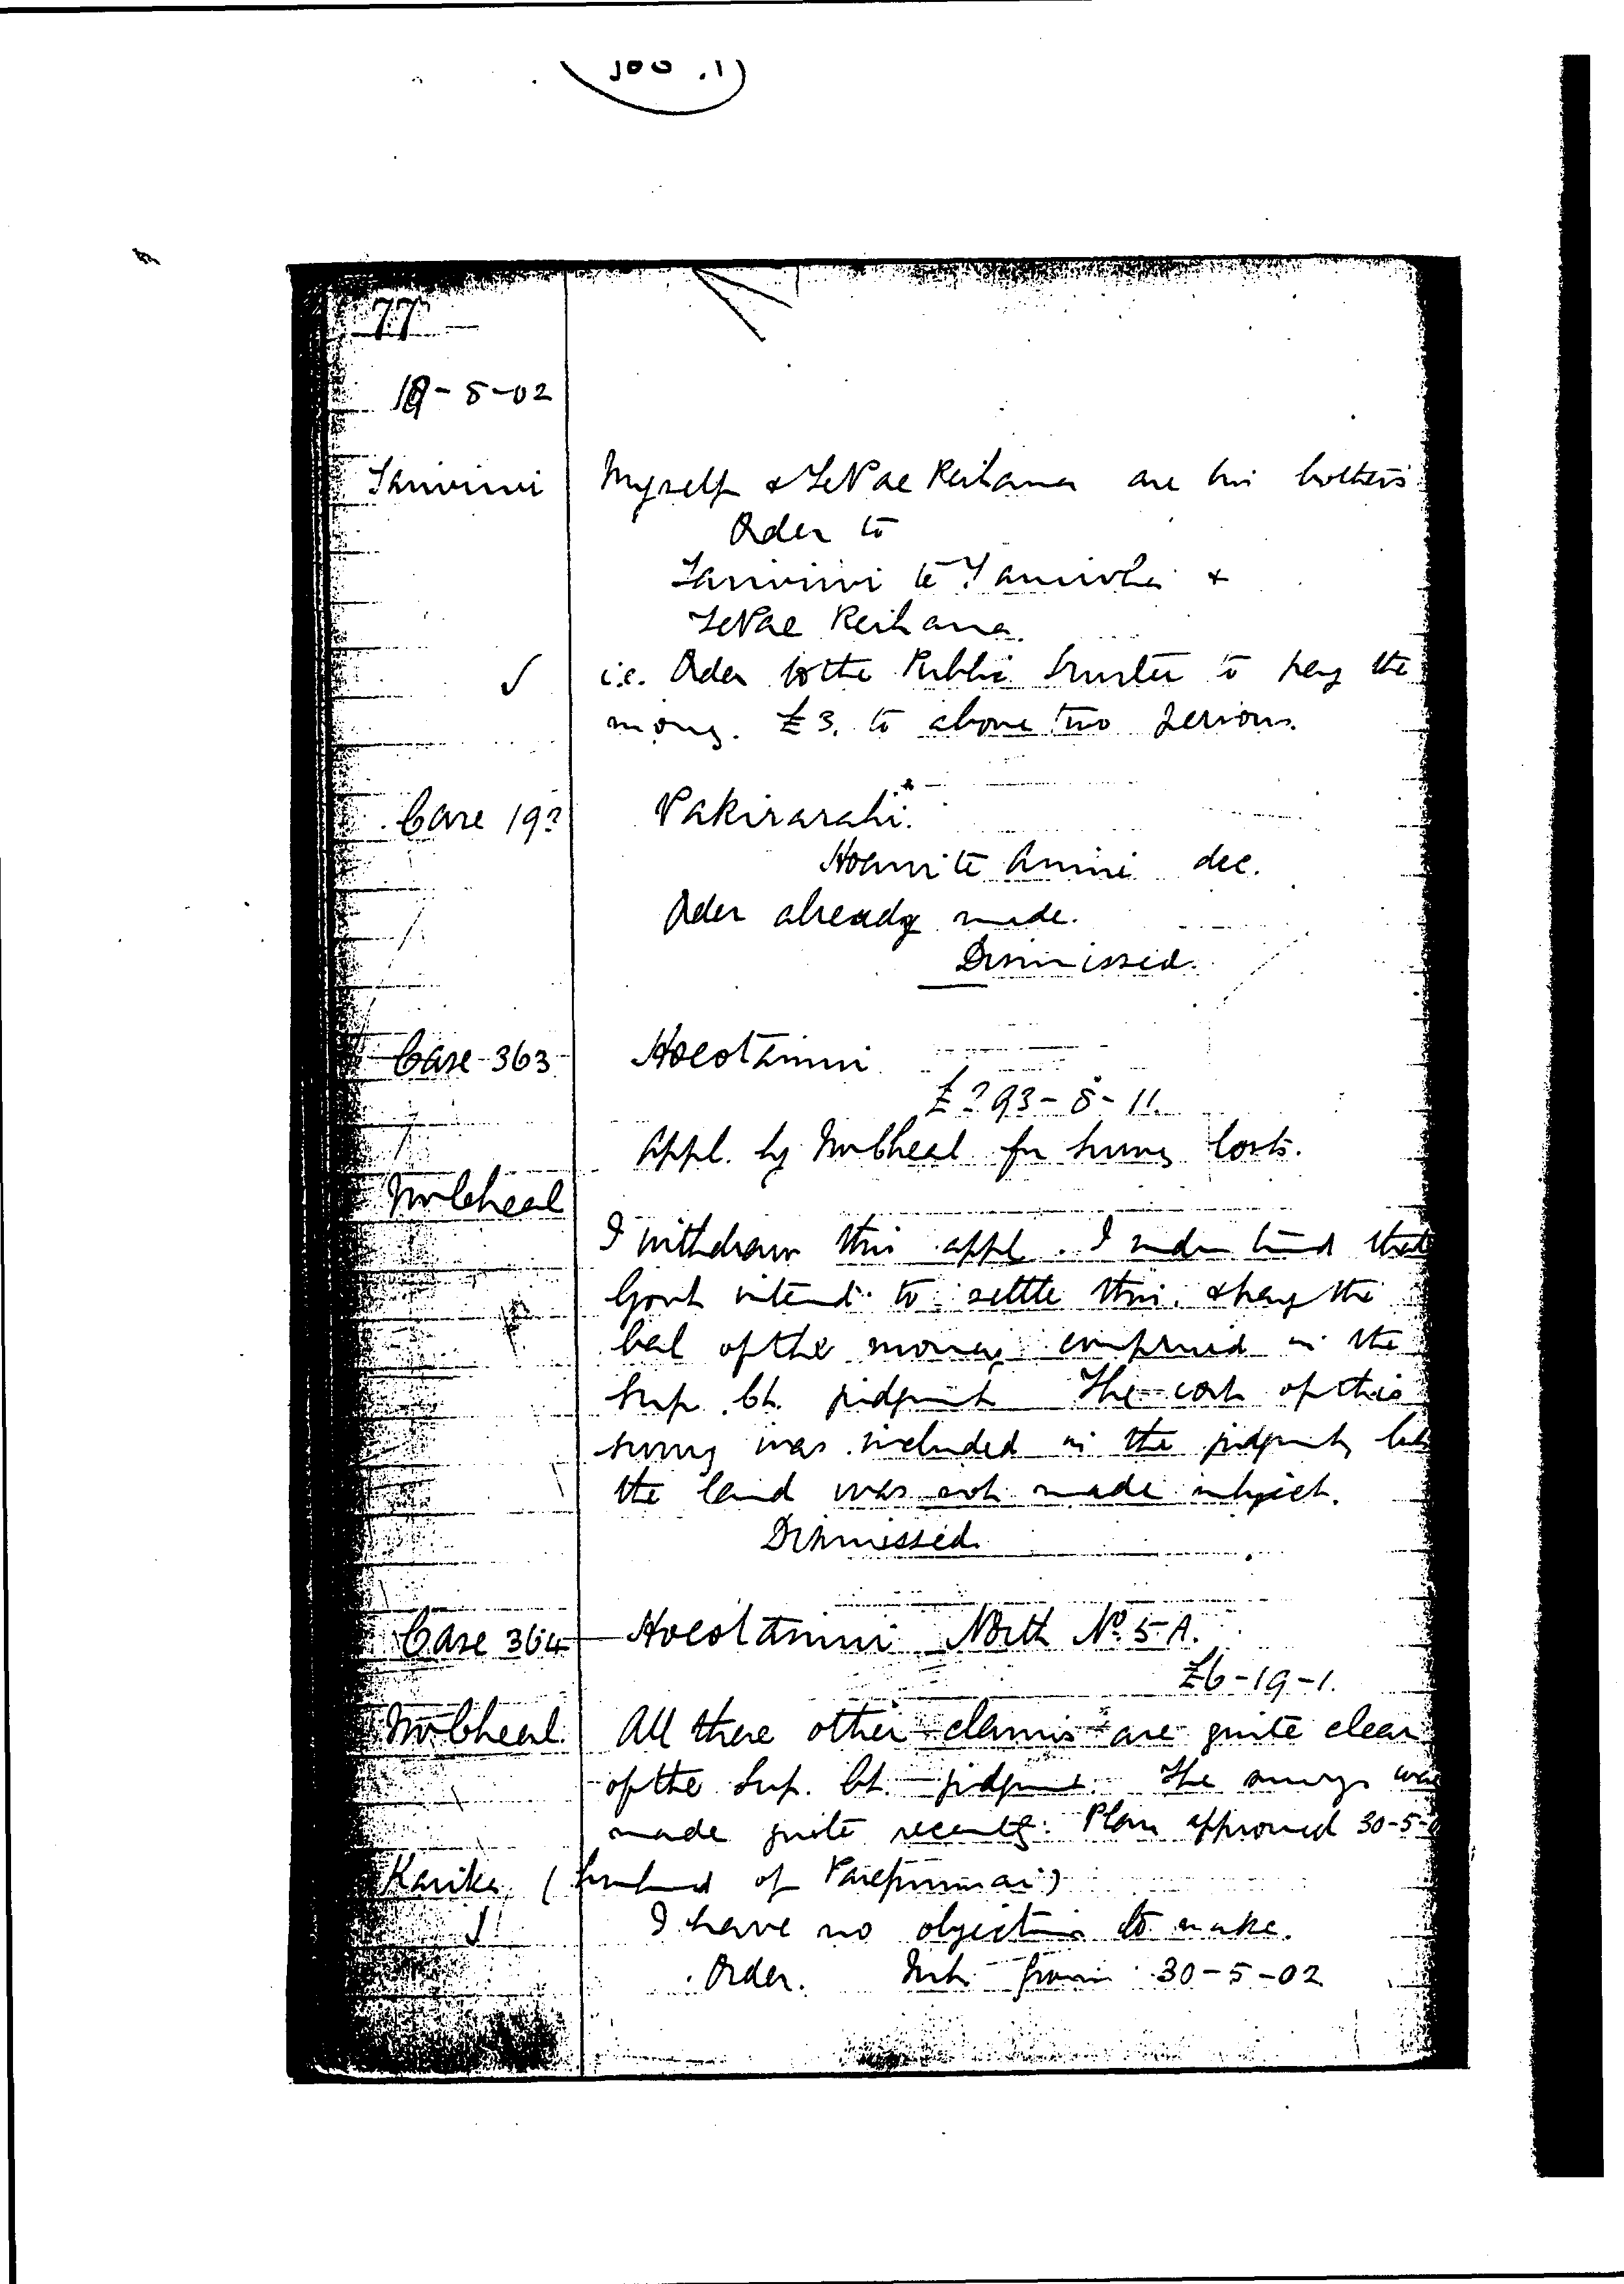 77
18-8-02
Taniwini Myself & Te Pae Reihana are his brothers
Order to
Taniwini te &
Te Pae Reihana.
i.e. Order to the Public Trustee to pay the
money. £3. to above two persons.
Case 192 Pakirarahi.
dec.
Order already made.
Dismissed.
Case 363 Hoeotainui
£293-8-11.
Appl. by Mr Cheal for survey costs.
Mr Cheal
I withdraw this appl. I understand that
Govt intend to settle this. & pay the
bal of the moneys comprised in the
Sup. Ct. judgment The cost of this
survey was included in the judgment, but
the land was not made subject.
Dismissed.
Case 364 Hoeotainui North No. 5A.
£6-19-1.
Mr Cheal. All these other claims are quite clear
of the Sup. Ct. judgment. The surveys were
made quite recently. Plan approved 30-5-
Karika, (husband of Parepumai)
I have no objection to make.
Order. Int. from 30-5-02